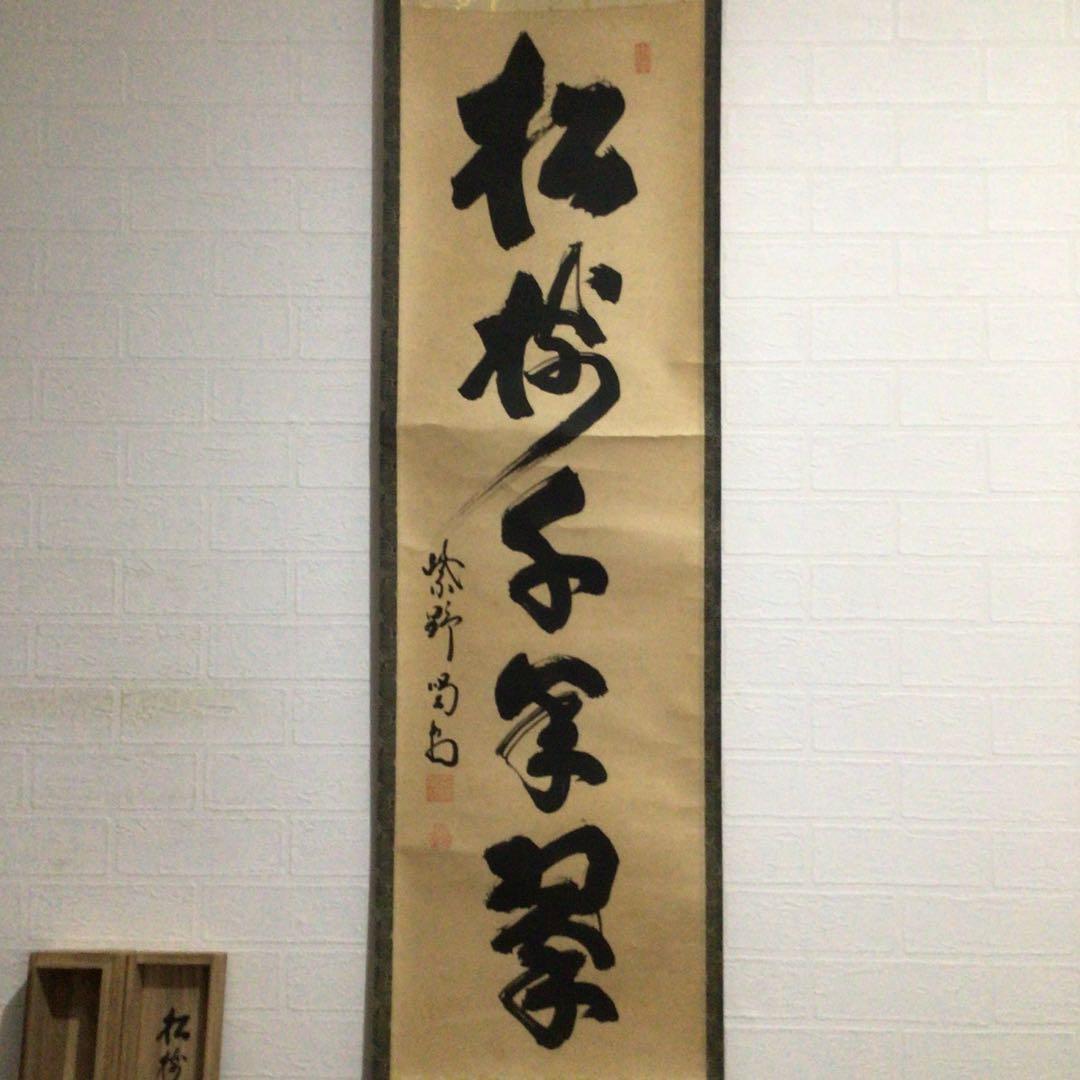 松樹千年翠
紫野
松樹